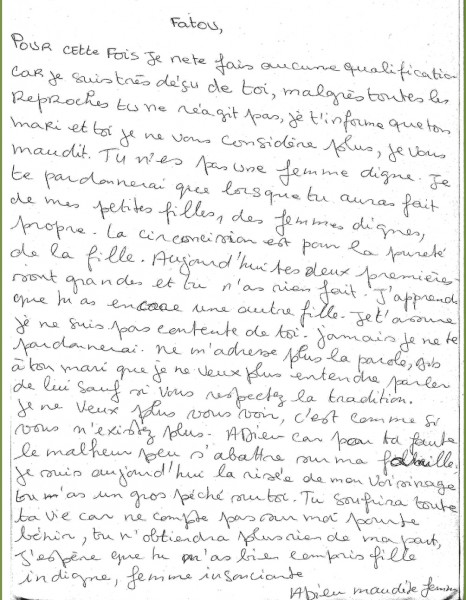 Fatou,
Pour cette fois je ne te fais aucune qualification
car je suis très déçu de toi, malgrès toutes les
Reproches tu ne réagit pas, je t'informe que ton
mari et toi je ne vous considère plus, je vous
maudit. Tu n'es pas une femme digne. Je
te pardonnerai que lorsque tu auras fait
de mes petites filles, des femmes dignes,
propre. La circoncision est pour la pureté
de la fille. Aujourd'hui tes deux premières
sont grandes et tu n'as rien fait. J'apprends
que tu as encore une autre fille. Je t'assure
je ne suis pas contente de toi. Jamais je ne te
pardonnerai. ne m'adresse plus la parole, dis
à ton mari que je ne veux plus entendre parler
de lui sauf si vous respectez la tradition.
Je ne veux plus vous voir, c'est comme si
vous n'existez plus. Adieu car par ta faute
le malheur peu s'abattre sur ma famille.
Je suis aujourd'hui la risée de mon voisinage
tu m'as un gros péché sur toi. Tu soufrira toute
ta vie car ne compte pas sur moi pour te
bénir, tu n'obtiendra plus rien de ma part,
J'espère que tu m'as bien compris fille
indigne, femme insonciante
Adieu maudite femme